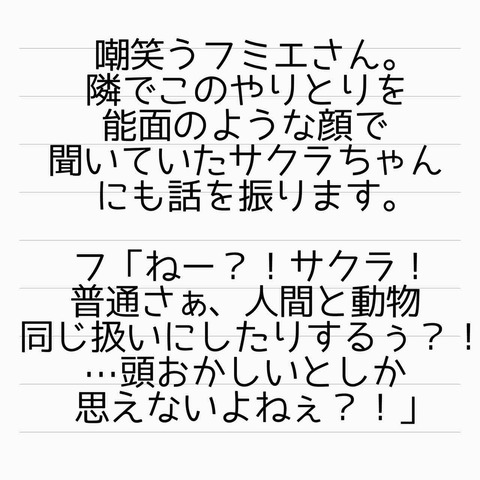 嘲笑うフミエさん。
隣でこのやりとりを
能面のような顔で
聞いていたサクラちゃん
にも話を振ります。
フ「ねー？！サクラ！
普通さぁ、人間と動物
同じ扱いにしたりするぅ？！
…頭おかしいとしか
思えないよねぇ？！」